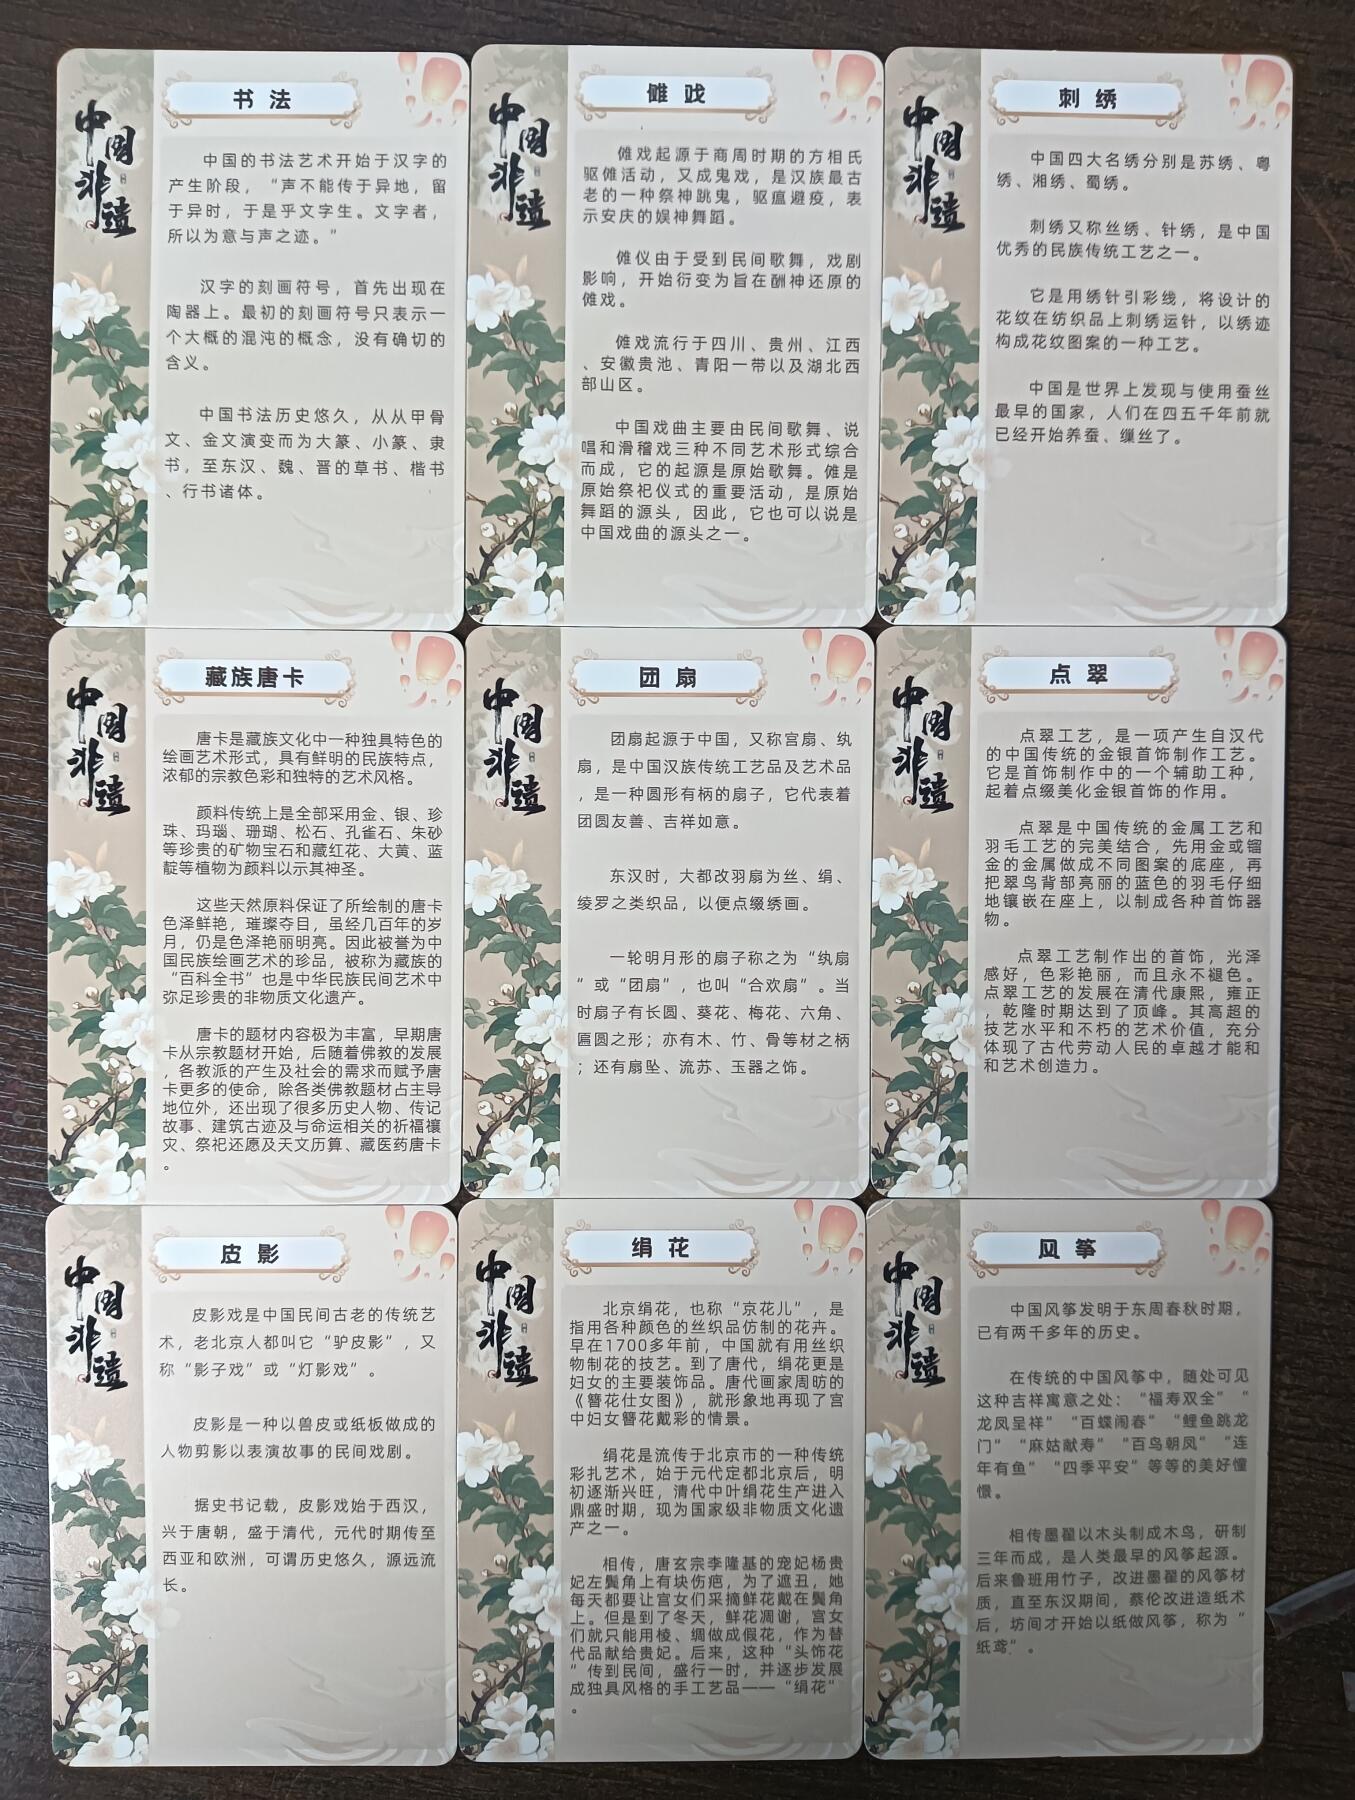 中国非遗
书法
中国的书法艺术开始于汉字的
产生阶段，“声不能传于异地，留
于异时，于是乎文字生。文字者，
所以为意与声之迹。”
汉字的刻画符号，首先出现在
陶器上。最初的刻画符号只表示一
个大概的混沌的概念，没有确切的
含义。
中国书法历史悠久，从从甲骨
文、金文演变而为大篆、小篆、隶
书，至东汉、魏、晋的草书、楷书
、行书诸体。
中国非遗
傩戏
傩戏起源于商周时期的方相氏
驱傩活动，又成鬼戏，是汉族最古
老的一种祭神跳鬼，驱瘟避疫，表
示安庆的娱神舞蹈。
傩仪由于受到民间歌舞，戏剧
影响，开始衍变为旨在酬神还原的
傩戏。
傩戏流行于四川、贵州、江西
、安徽贵池、青阳一带以及湖北西
部山区。
中国戏曲主要由民间歌舞、说
唱和滑稽戏三种不同艺术形式综合
而成，它的起源是原始歌舞。傩是
原始祭祀仪式的重要活动，是原始
舞蹈的源头，因此，它也可以说是
中国戏曲的源头之一。
中国非遗
刺绣
中国四大名绣分别是苏绣、粤
绣、湘绣、蜀绣。
刺绣又称丝绣、针绣，是中国
优秀的民族传统工艺之一。
它是用绣针引彩线，将设计的
花纹在纺织品上刺绣运针，以绣迹
构成花纹图案的一种工艺。
中国是世界上发现与使用蚕丝
最早的国家，人们在四五千年前就
已经开始养蚕、缫丝了。
中国非遗
藏族唐卡
唐卡是藏族文化中一种独具特色的
绘画艺术形式，具有鲜明的民族特点，
浓郁的宗教色彩和独特的艺术风格。
颜料传统上是全部采用金、银、珍
珠、玛瑙、珊瑚、松石、孔雀石、朱砂
等珍贵的矿物宝石和藏红花、大黄、蓝
靛等植物为颜料以示其神圣。
这些天然原料保证了所绘制的唐卡
色泽鲜艳，璀璨夺目，虽经几百年的岁
月，仍是色泽艳丽明亮。因此被誉为中
国民族绘画艺术的珍品，被称为藏族的
“百科全书”也是中华民族民间艺术中
弥足珍贵的非物质文化遗产。
唐卡的题材内容极为丰富，早期唐
卡从宗教题材开始，后随着佛教的发展
，各教派的产生及社会的需求而赋予唐
卡更多的使命，除各类佛教题材占主导
地位外，还出现了很多历史人物、传记
故事、建筑古迹及与命运相关的祈福禳
灾、祭祀还愿及天文历算、藏医药唐卡
。
中国非遗
团扇
团扇起源于中国，又称宫扇、纨
扇，是中国汉族传统工艺品及艺术品
，是一种圆形有柄的扇子，它代表着
团圆友善、吉祥如意。
东汉时，大都改羽扇为丝、绢、
绫罗之类织品，以便点缀绣画。
一轮明月形的扇子称之为“纨扇
”或“团扇”，也叫“合欢扇”。当
时扇子有长圆、葵花、梅花、六角、
匾圆之形；亦有木、竹、骨等材之柄
；还有扇坠、流苏、玉器之饰。
中国非遗
点翠
点翠工艺，是一项产生自汉代
的中国传统的金银首饰制作工艺。
它是首饰制作中的一个辅助工种，
起着点缀美化金银首饰的作用。
点翠是中国传统的金属工艺和
羽毛工艺的完美结合，先用金或镏
金的金属做成不同图案的底座，再
把翠鸟背部亮丽的蓝色的羽毛仔细
地镶嵌在座上，以制成各种首饰器
物。
点翠工艺制作出的首饰，光泽
感好，色彩艳丽，而且永不褪色。
点翠工艺的发展在清代康熙，雍正
，乾隆时期达到了顶峰。其高超的
技艺水平和不朽的艺术价值，充分
体现了古代劳动人民的卓越才能和
和艺术创造力。
中国非遗
皮影
皮影戏是中国民间古老的传统艺
术，老北京人都叫它“驴皮影”，又
称“影子戏”或“灯影戏”。
皮影是一种以兽皮或纸板做成的
人物剪影以表演故事的民间戏剧。
据史书记载，皮影戏始于西汉，
兴于唐朝，盛于清代，元代时期传至
西亚和欧洲，可谓历史悠久，源远流
长。
中国非遗
绢花
北京绢花，也称“京花儿”，是
指用各种颜色的丝织品仿制的花卉。
早在1700多年前，中国就有用丝织
物制花的技艺。到了唐代，绢花更是
妇女的主要装饰品。唐代画家周昉的
《簪花仕女图》，就形象地再现了宫
中妇女簪花戴彩的情景。
绢花是流传于北京市的一种传统
彩扎艺术，始于元代定都北京后，明
初逐渐兴旺，清代中叶绢花生产进入
鼎盛时期，现为国家级非物质文化遗
产之一。
相传，唐玄宗李隆基的宠妃杨贵
妃左鬓角上有块伤疤，为了遮丑，她
每天都要让宫女们采摘鲜花戴在鬓角
上。但是到了冬天，鲜花凋谢，宫女
们就只能用棱、绸做成假花，作为替
代品献给贵妃。后来，这种“头饰花
”传到民间，盛行一时，并逐步发展
成独具风格的手工艺品——“绢花”
。
中国非遗
风筝
中国风筝发明于东周春秋时期，
已有两千多年的历史。
在传统的中国风筝中，随处可见
这种吉祥寓意之处：“福寿双全”“
龙凤呈祥”“百蝶闹春”“鲤鱼跳龙
门”“麻姑献寿”“百鸟朝凤”“连
年有鱼”“四季平安”等等的美好憧
憬。
相传墨翟以木头制成木鸟，研制
三年而成，是人类最早的风筝起源。
后来鲁班用竹子，改进墨翟的风筝材
质，直至东汉期间，蔡伦改进造纸术
后，坊间才开始以纸做风筝，称为“
纸鸢”。